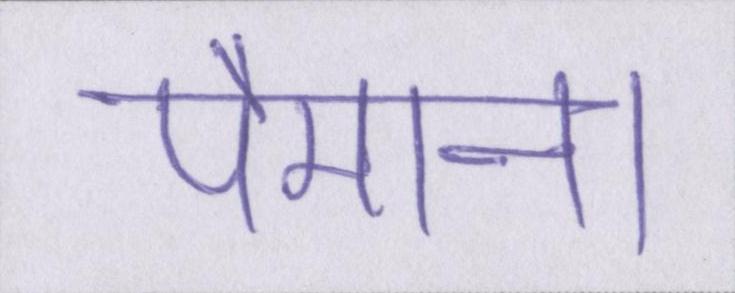 पैमाना